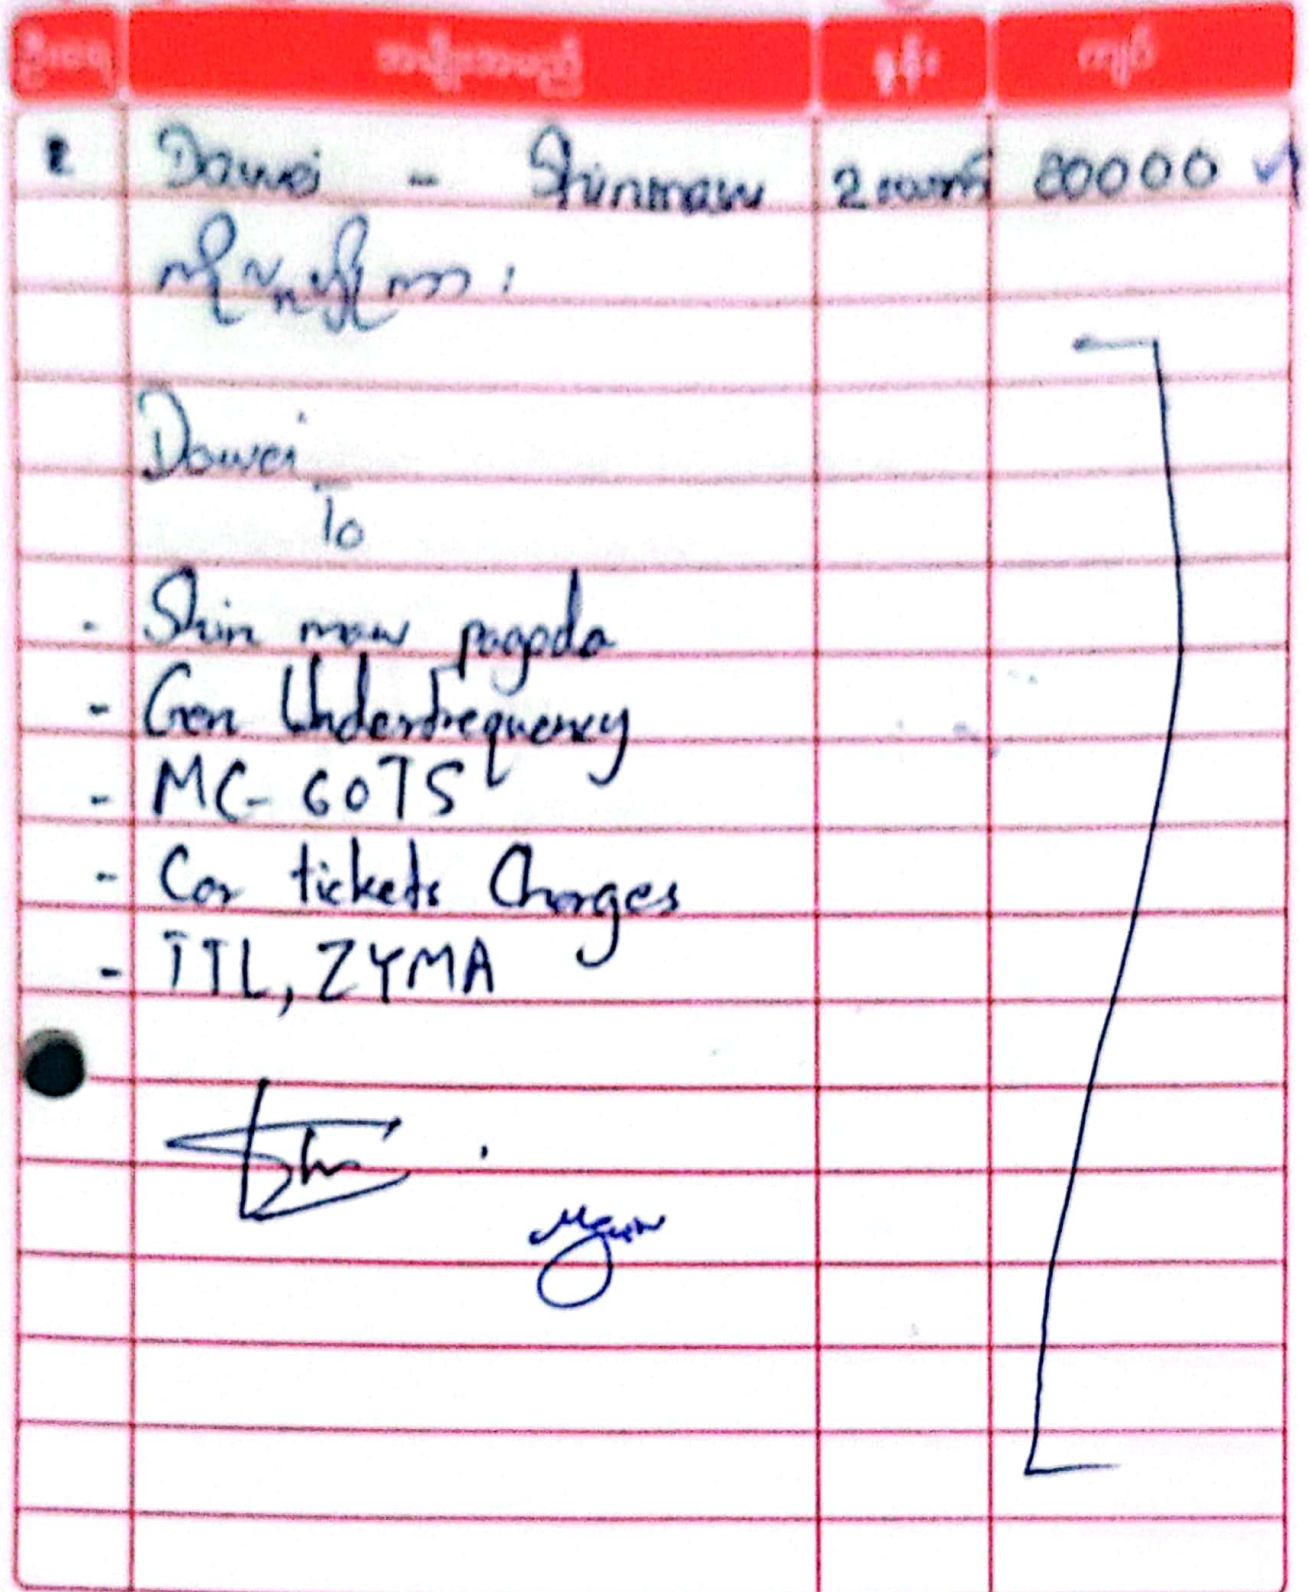 အမျိုးအမည် နှုန်း ကျပ်
Dawei - Shinmaw 2ယောက် 80000
Dawei
To
- Shin maw pagoda
- Gen Underfrequency
- MC- 60TS
- Car tickets Charges
- TTL, ZYMA